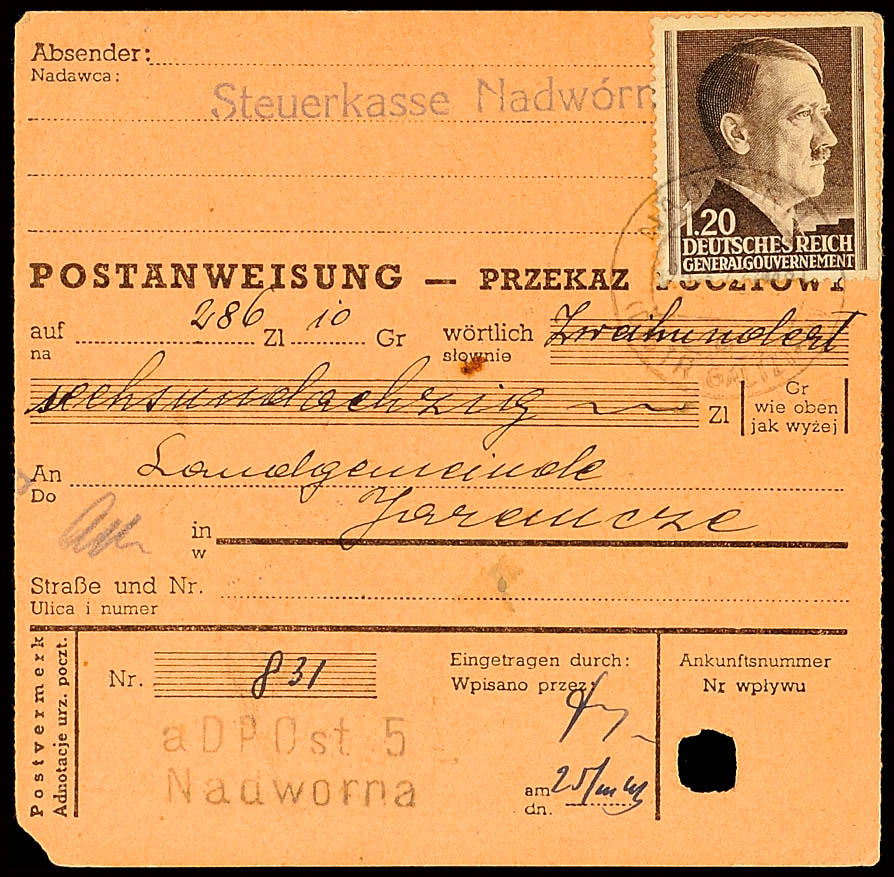 Absender:
Nadawca:
Steuerkasse Nadwórn
1.20
DEUTSCHES REICH
GENERALGOUVERNEMENT
POSTANWEISUNG — PRZEKAZ POCZTOWY
auf 286 Zl 10 Gr wörtlich Zweihundert
na słownie
sechsundachzig Zl Gr wie oben jak wyżej
An Landgemeinde
Do
in Jaremcze
w
Straße und Nr.
Ulica i numer
Postvermerk
Adnotacje urz. poczt.
Nr. 831
Eingetragen durch:
Wpisano przez:
Ankunftsnummer
Nr wpływu
aDPOst 5
Nadworna
am 25/
dn.